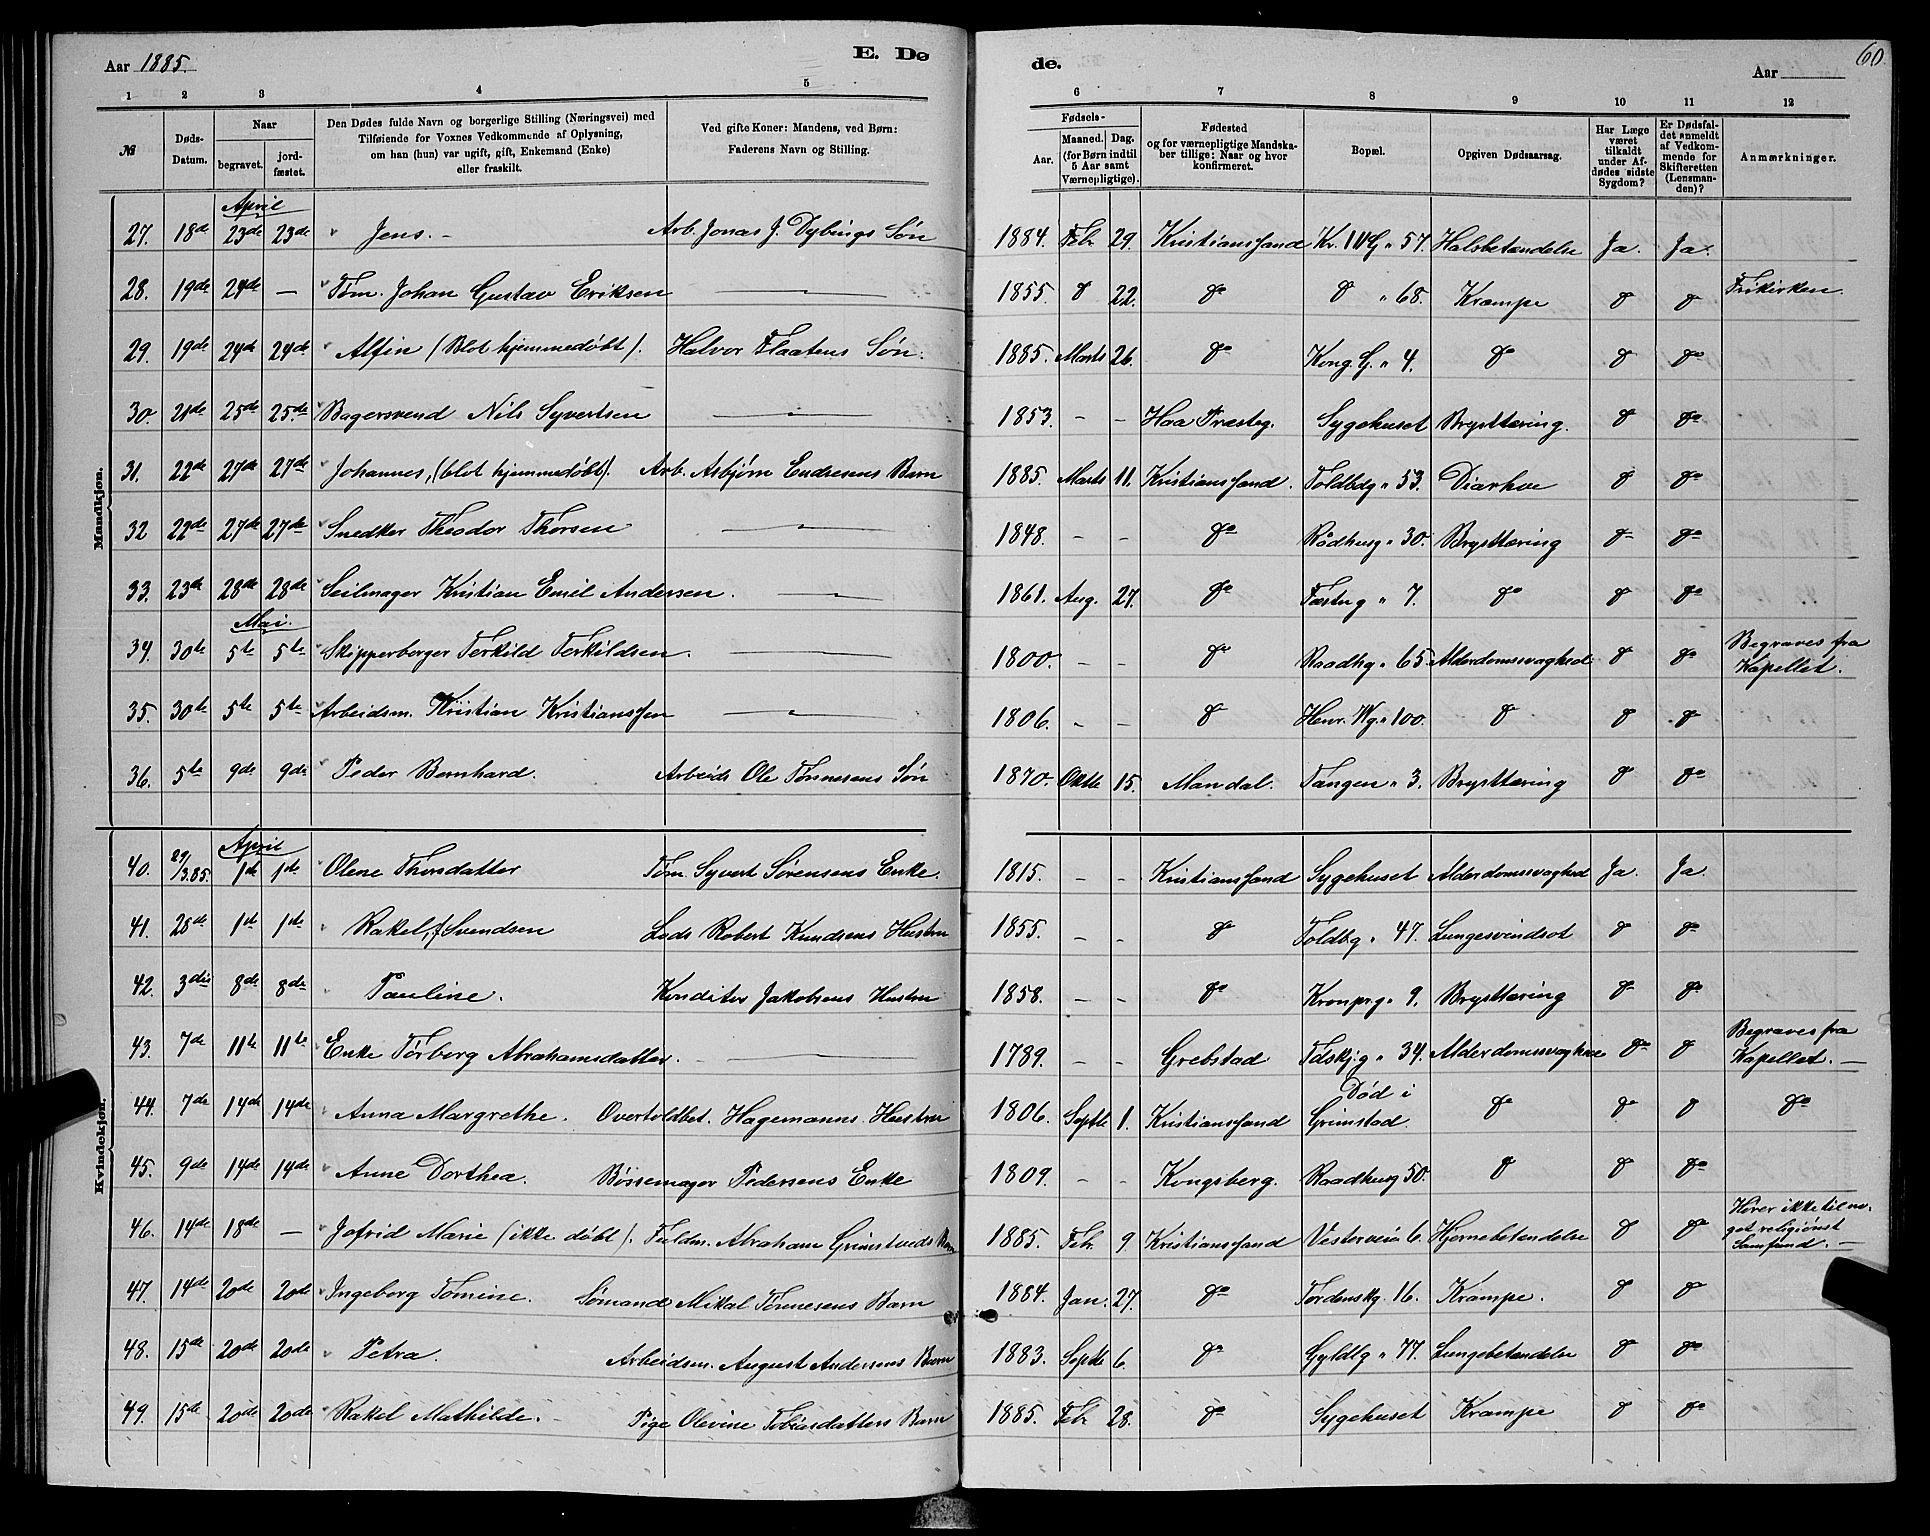 Aar 1885.
E. Dø
de.
Aar
60
1 2 3 4 5 6 7 8 9 10 11 12
№
Døds-Datum.
Naar
begravet.
jord-fæstet.
Den Dødes fulde Navn og borgerlige Stilling (Næringsvei) med
Tilføiende for Voxnes Vedkommende af Oplysning,
om han (hun) var ugift, gift, Enkemand (Enke)
eller fraskilt.
Ved gifte Koner: Mandens, ved Børn:
Faderens Navn og Stilling.
Fødsels-
Aar.
Maaned. Dag.
(for Børn indtil
5 Aar samt
Værnepligtige).
Fødested
og for værnepligtige Mandska-
ber tillige: Naar og hvor
konfirmeret.
Bopæl.
Opgiven Dødsaarsag.
Har Læge
været
tilkaldt
under Af-
dødes sidste
Sygdom?
Er Dødsfal-
det anmeldt
af Vedkom-
mende for
Skifteretten
(Lensman-
den)?
Anmærkninger.
Mandkjøn.
April
27. 18de 23de 23de Jens. - Arb. Jonas J. Dybings Søn 1884. Febr 29. Kristianssand Kr. IVG " 57. Halsbetændelse Ja. Ja.
28. 19de 24de — Tøm. Johan Gustav Eriksen — " — 1855. do 22. do do " 68. Krampe do do Frikirken.
29. 19de 24de 24de Alfin (Blot hjemmedøbt). Halvor Flaatens Søn. 1885. Marts 26. do Kong. G. " 4. do do do
30. 21de 25de 25de Bagersvend Nils Syvertsen — " — 1853. - - Haa Præsteg. Sygehuset Brysttæring. do do
31. 22de 27de 27de Johannes, (blot hjemmedøbt). Arb. Asbjørn Endresens Barn 1885. Marts 11. Kristianssand. Toldbdg " 53. Diarhoe do do
32 22de 27de 27de Snedker Theodor Thorsen — " — 1848. - - do Rådhusg " 30. Brysttæring do do
33. 23de 28de 28de Seilmager Kristian Emil Andersen. — " — 1861. Aug. 27. do Fæstng " 7. do do do
Mai.
34. 30te 5te 5te Skipperborger Terkild Terkildsen. — " — 1800. - - do Raadhg " 65. Alderdomssvaghed do do Begraves fra
Kapellet.
35. 30te 5te 5te Arbeidsm. Kristian Kristianssen — " — 1806. - - do Henr. Wg. " 100. do do do
36. 5te 9de 9de Peder Bernhard. Arbeids Ole Tønnesens Søn 1870. Oktbr 15. Mandal. Tangen " 3. Brysttæring do do
Kvindekjøn.
April
40. 29/3.85. 1ste 1ste Olene Thorsdatter Tøm. Syvert Sørensens Enke. 1815. - - Kristianssand Sygehuset Alderdomssvaghed Ja. Ja.
41. 25de 1ste 1ste Rakel, f Svendsen Lods Robert Knudsens Hustru 1855. - - do Toldbg " 47. Lungesvindsot do do
42. 3die 8de 8de Pauline. Konditor Jakobsens Hustru 1858. - - do Kronprg " 9. Brysttæring do do
43. 7de 11te 11te Enke Tørberg Abrahamsdatter. — 1789. - - Grebstad Tdskjg " 34. Alderdomssvaghed do do Begraves fra
Kapellet. —
44. 7de 14de 14de Anna Margrethe. Overtoldbet. Hagemanns Hustru 1806. Septbr 1. Kristianssand Død i
Grimstad. do do do do
45. 9de 14de 14de Anne Dorthea. Bøssemager Pedersens Enke 1809. - - Kongsberg. Raadhusg 50. do do do
46. 14de 18de — Jofrid Marie (ikke døbt). Fuldm. Abraham Grimstveds Barn 1885. Febr 9 Kristianssand Vesterveien 6. Hjernebetændelse do do Hører ikke til no-
get religiønst
Samfund. —
47. 14de 20de 20de Ingeborg Tomine. Sømand Mikal Tønnesens Barn 1884. Jan. 27. do Tordenskg. 16. Krampe. do do
48. 15de 20de 20de Petra. Arbeidsm. August Andersens Barn 1883. Septbr 6. do Gyldlg " 77. Lungebetændelse do do
49. 15de 20de 20de Rakel Mathilde. Pige Olevine Tobiasdatters Barn 1885. Febr 28. do Sygehuset Krampe do do